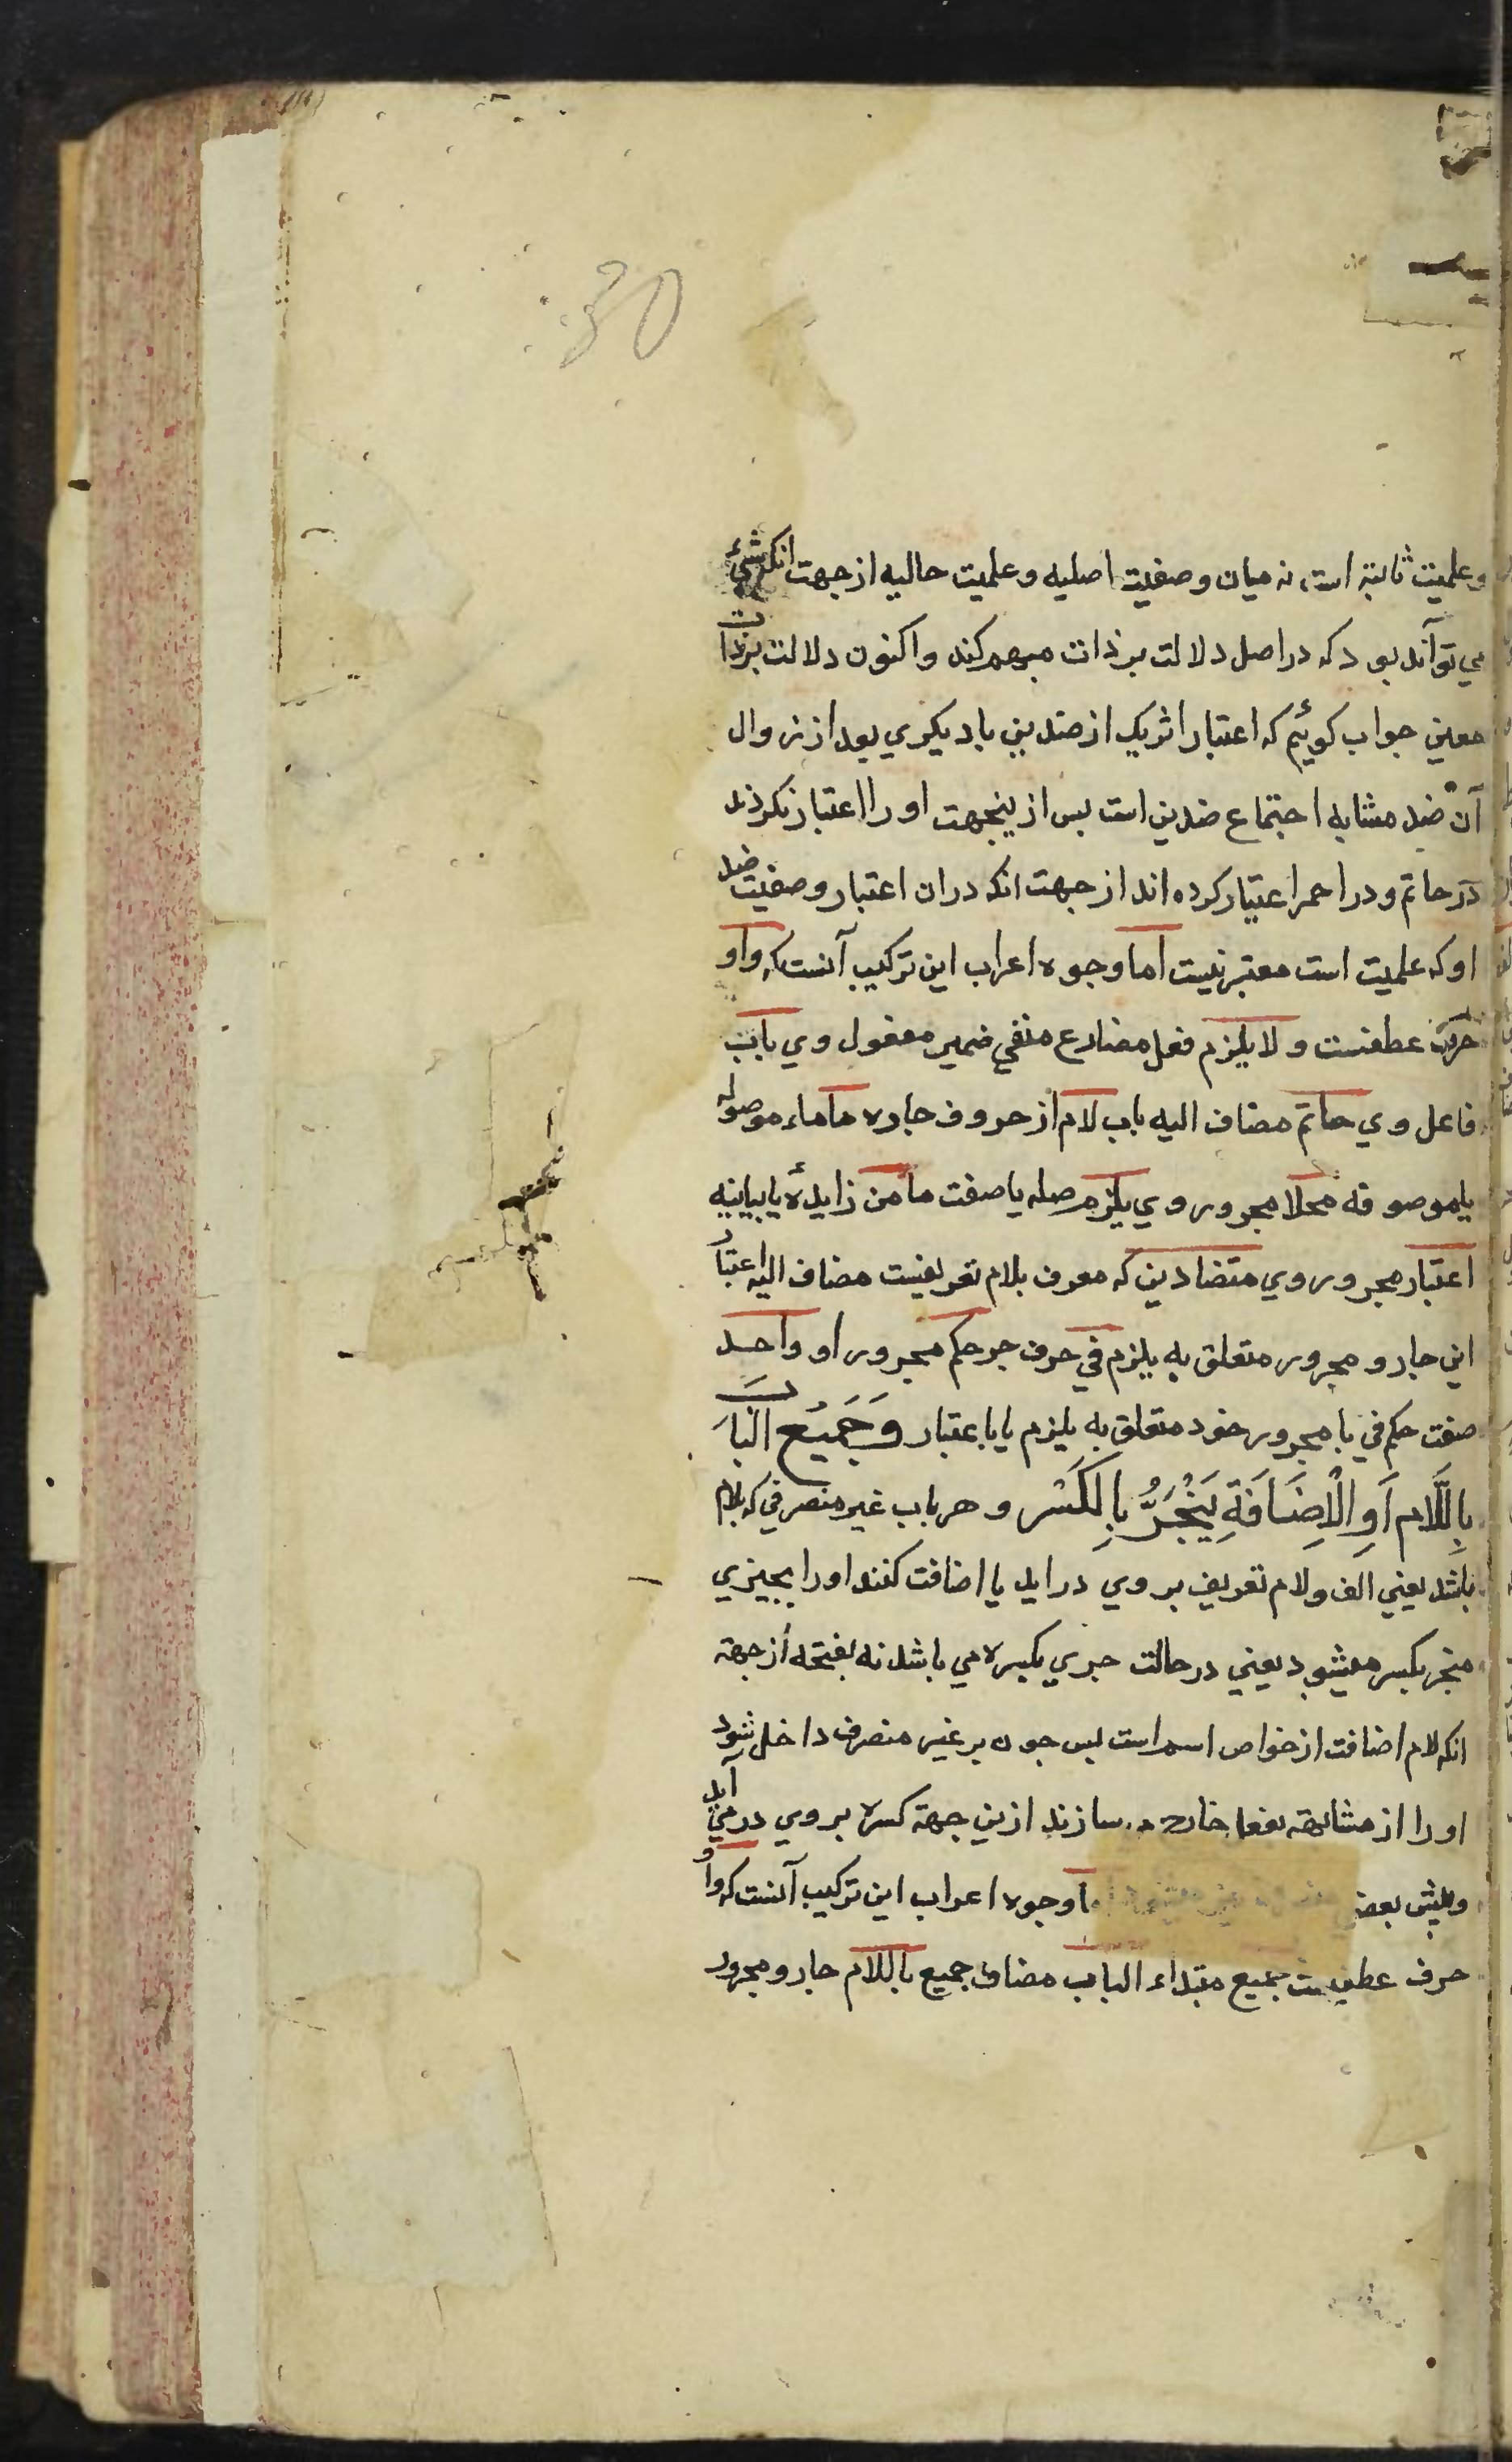 30
و علمیت ثابتة است نه میان وصفیت اصلیه و علمیت حالیه ازجهت انکه شیء
می تواند بود که در اصل دلالت بر ذات مبهم کند و اکنون دلالت بر ذات
معین جواب کوئیم که اعتبار اثریک از ضدین با دیکری بعد از زوال
آن ضد مشابه اجتماع ضدین است بس ازینجهت او را اعتبار نکردند
در حاتم و در احمر اعتبار کرده اند از جهت انکه دران اعتبار وصفیت ضد
او که علمیت است معتبر نیست اما وجوه اعراب این ترکیب آنست که واو
حرف عطفست و لا یلزم فعل مضارع منفی ضمیر مفعول وی باب
فاعل وی حاتم مضاف الیه باب لام از حروف جاره ما ماء موصوله
یا موصوفه محلا مجرور وی یلزم صله یا صفت ما من زایدهٔ یا بیانیه
اعتبار مجرور وی متضادین که معرف بلام تعریفست مضاف الیه اعتبار
این جار و مجرور متعلق به یلزم في حرف جر حکم مجرور او واحد
صفت حکم في با مجرور خود متعلق به یلزم یا باعتبار وَجَمِيْعُ البَابِ
بِاللَّامِ اَوِ الْاِضَافَةِ يَنْجَرُّ بِالْكَسْرِ و هر باب غیر منصرفی که بلام
باشد یعني الف و لام تعریف بر وي در اید یا اضافت کنند او را بچیزي
منجر بکسر میشود یعني در حالت جري بکسره مي باشد نه بفتحه ازجهة
انکه لام اضافت از خواص اسم است بس جون بر غیر منصرف داخل شود
او را از مشابهة بفعل خارج سازند ازین جهة کسره بر وي در مي آید
و پیش بعضي اما وجوه اعراب این ترکیب آنست که واو
حرف عطفست جمیع مبتداء الباب مضاف جمیع باللام جار و مجرور